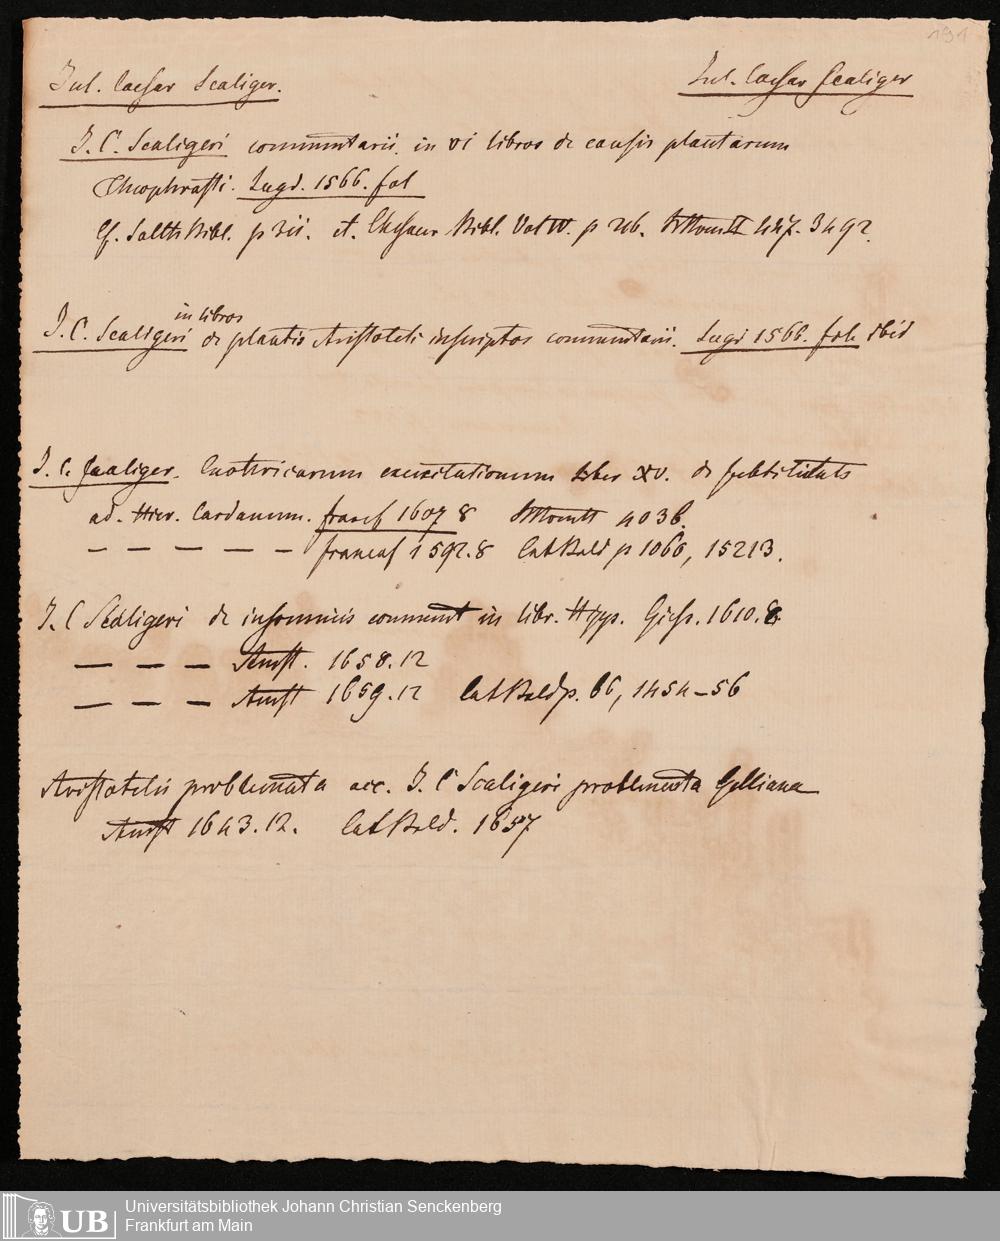 191
Jul. Caesar Scaliger. Jul. Caesar Scaliger
J. C. Scaligeri commentarii in VI libros de causis plantarum
Theophrasti. Lugd. 1566. fol
Cf. Bibl. p et Bibl. Vol IV. p 447. 3492.
in libros
J. C. Scaligeri de plantis Aristoteli inscriptos commentarii. Lugd 1566. fol ibid
J. C. Scaliger. Exotericarum exercitationum liber XV. de subtilitate
ad. Hier. Cardanum. francf 1607 8 4036.
— — — — — francof 1592. 8 Cat Bald p 1066, 15213.
J. C Scaligeri de insomniis comment in libr. Hipp. Giess. 1610. 8.
— — — Amst. 1658. 12
— — — Amst 1659. 12 Cat Bald p. 66, 1454–56
Aristotelis problemata acc. J. C Scaligeri problemata Gelliana
Amst 1643. 12. Cat Bald. 1657
UB
Universitätsbibliothek Johann Christian Senckenberg
Frankfurt am Main